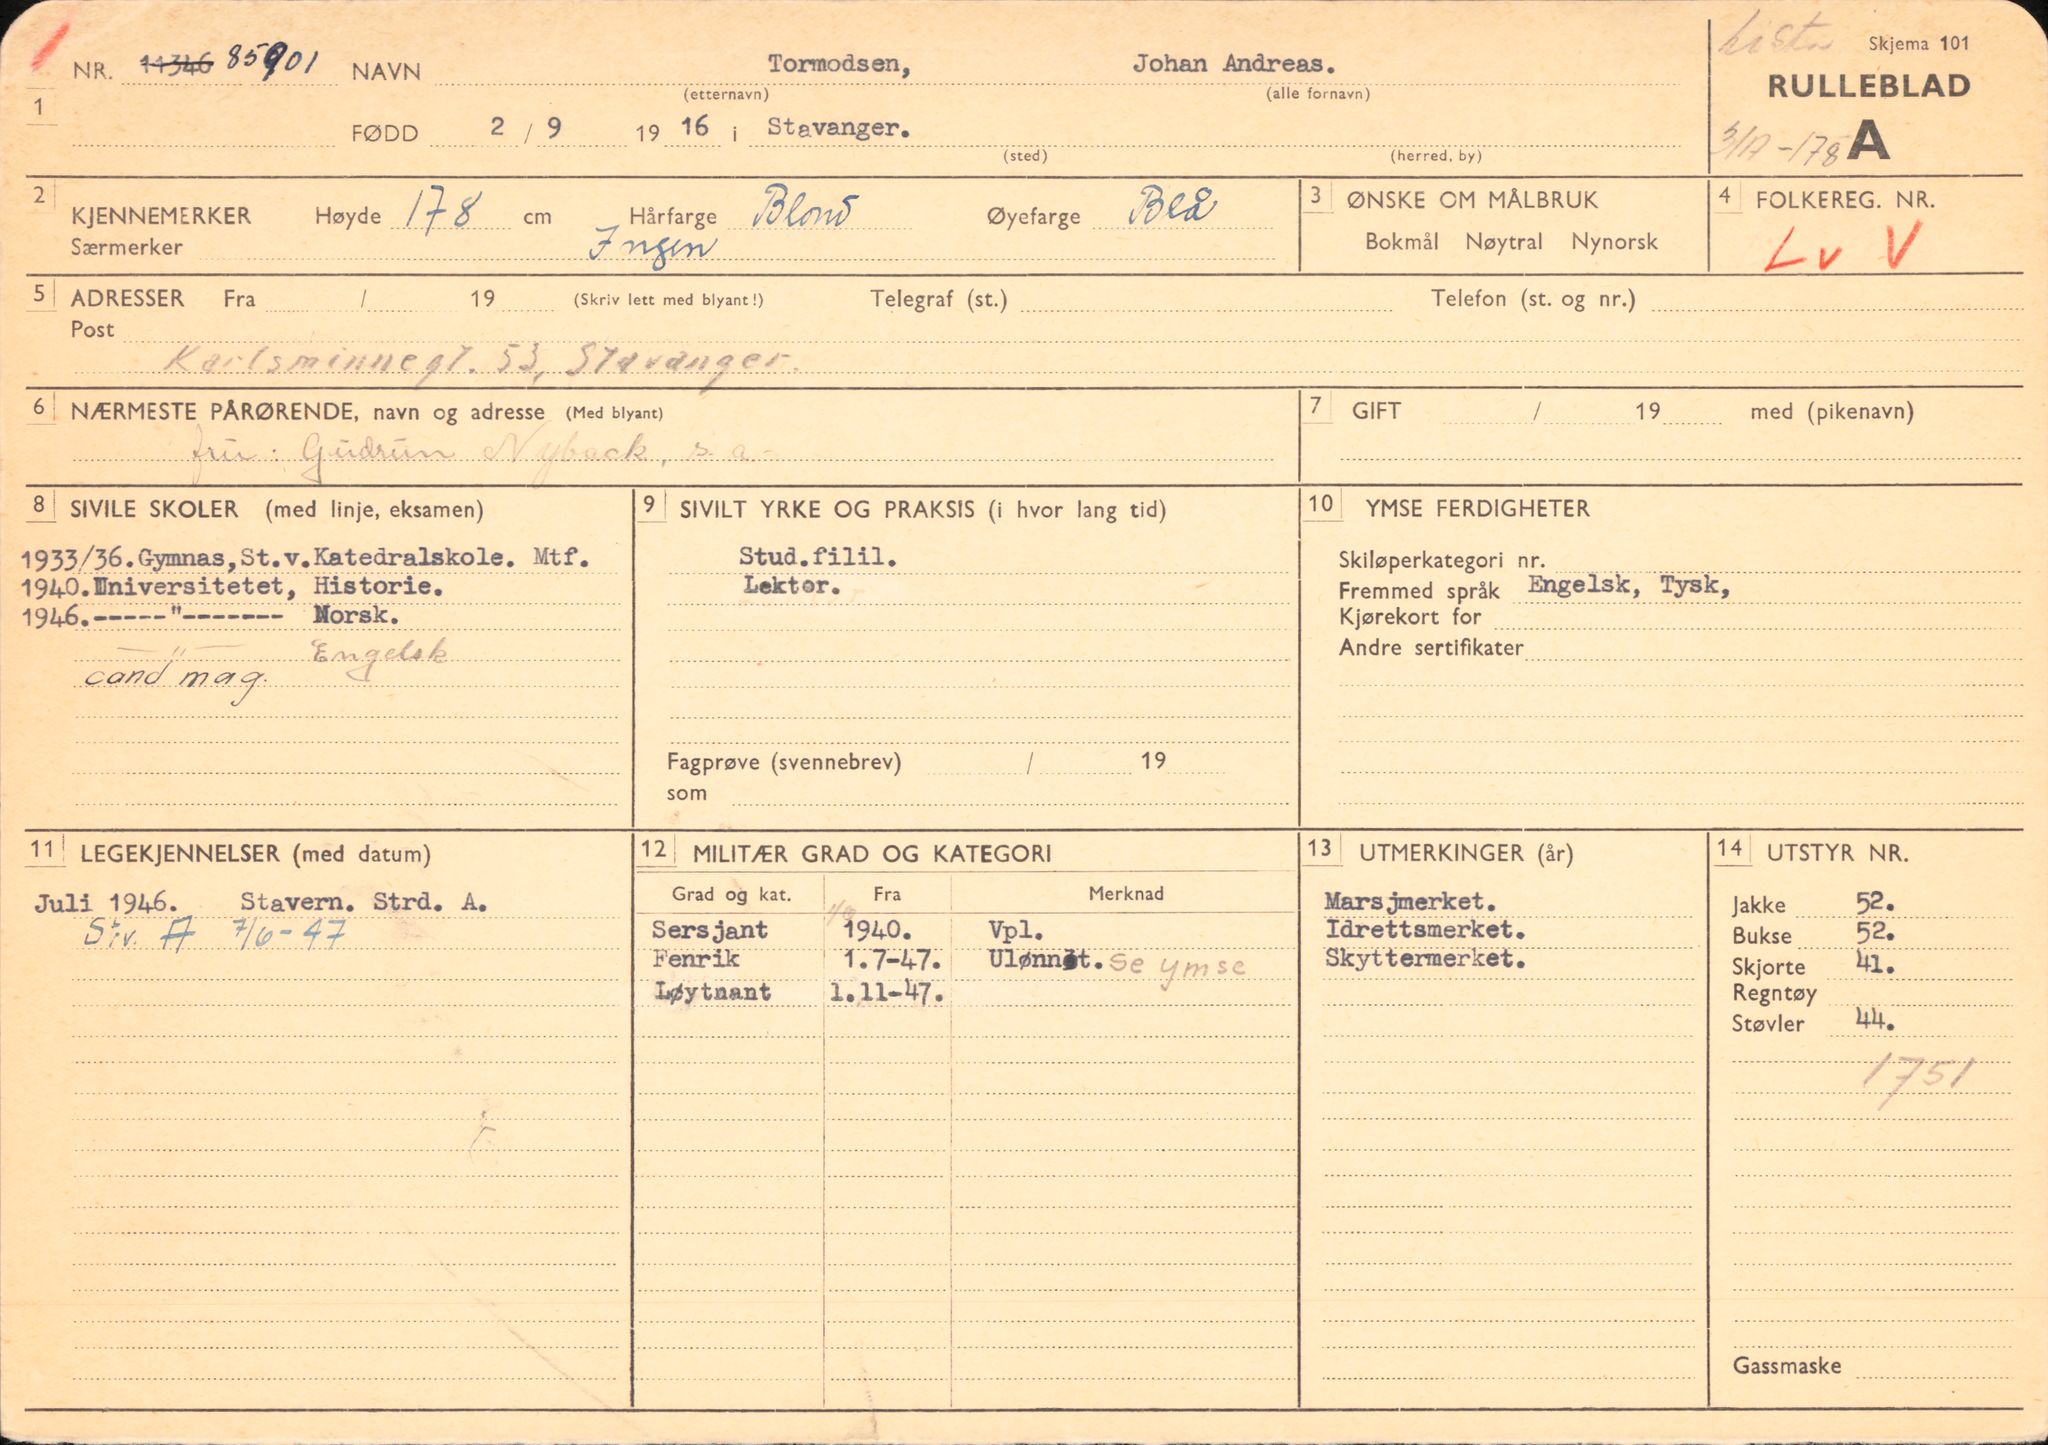 NR. 11346 85901 NAVN Tormodsen, Johan Andreas.
(etternavn) (alle fornavn)
Lista Skjema 101
RULLEBLAD
3/A-178 A
1
FØDD 2 / 9 19 16 i Stavanger.
(sted) (herred, by)
2 KJENNEMERKER Høyde 178 cm Hårfarge Blond Øyefarge Blå
Særmerker Ingen
3 ØNSKE OM MÅLBRUK
Bokmål Nøytral Nynorsk
4 FOLKEREG. NR.
Lv V
5 ADRESSER Fra / 19 (Skriv lett med blyant!) Telegraf (st.) Telefon (st. og nr.)
Post
Karlsminnegt. 53, Stavanger.
6 NÆRMESTE PÅRØRENDE, navn og adresse (Med blyant)
fru: Gudrun Nyback, s. a.
7 GIFT / 19 med (pikenavn)
8 SIVILE SKOLER (med linje, eksamen)
1933/36. Gymnas, St.v. Katedralskole. Mtf.
1940. Universitetet, Historie.
1946.-----"------- Norsk.
— " — Engelsk
cand mag.
9 SIVILT YRKE OG PRAKSIS (i hvor lang tid)
Stud.filil.
Lektor.
Fagprøve (svennebrev) / 19
som
10 YMSE FERDIGHETER
Skiløperkategori nr.
Fremmed språk Engelsk, Tysk,
Kjørekort for
Andre sertifikater
11 LEGEKJENNELSER (med datum)
Juli 1946. Stavern. Strd. A.
Stv. A 7/6-47
12 MILITÆR GRAD OG KATEGORI
Grad og kat. Fra Merknad
Sersjant 1940. Vpl.
Fenrik 1.7-47. Ulønnet. Se ymse
Løytnant 1.11-47.
13 UTMERKINGER (år)
Marsjmerket.
Idrettsmerket.
Skyttermerket.
14 UTSTYR NR.
Jakke 52.
Bukse 52.
Skjorte 41.
Regntøy
Støvler 44.
1751
Gassmaske